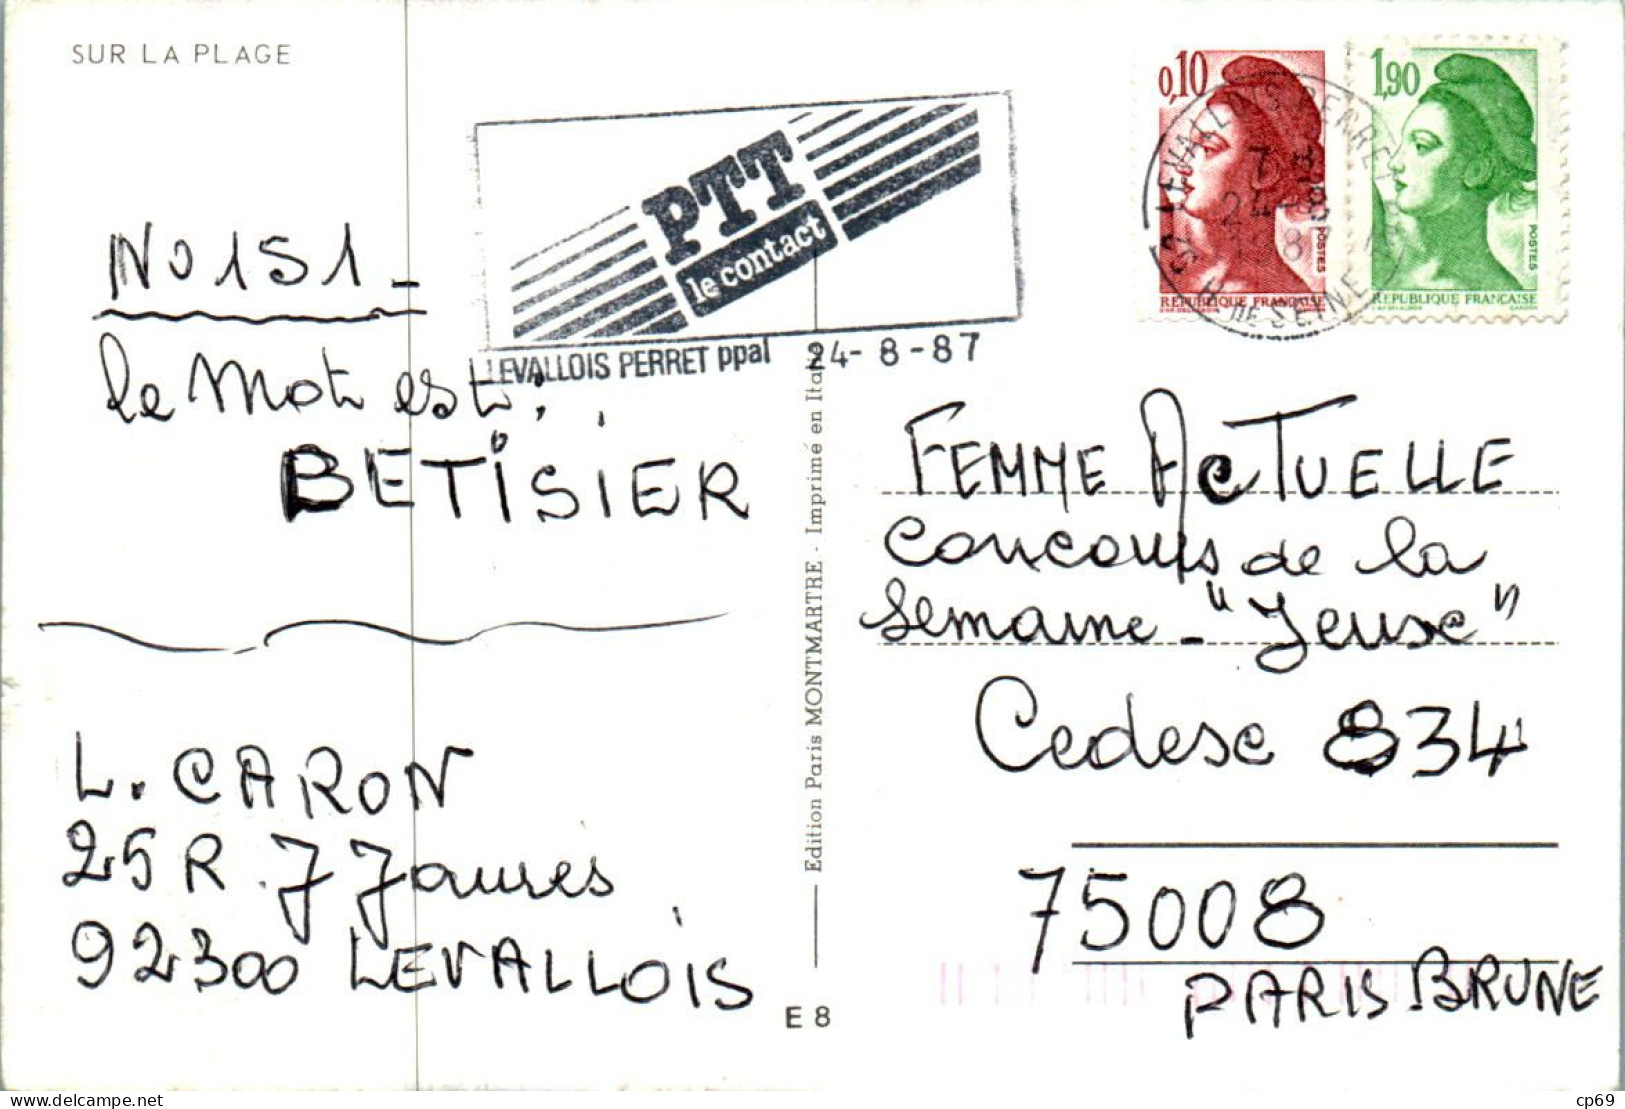 SUR LA PLAGE
0,10
1,90
PTT
le contact
POSTES
POSTES
REPUBLIQUE FRANÇAISE
REPUBLIQUE FRANÇAISE
LEVALLOIS PERRET ppal 24-8-87
LEVALLOIS PERRET
24-8
1987
H. DE SEINE
NO 151 -
le Mot est :
BETISIER
FEMME ACTUELLE
concours de la
semaine - "Jeuxe"
Cedex 834
75008
PARIS BRUNE
L. CARON
25 R. J Jaures
92300 LEVALLOIS
Edition Paris MONTMARTRE - Imprimé en Italie
E 8
cp69